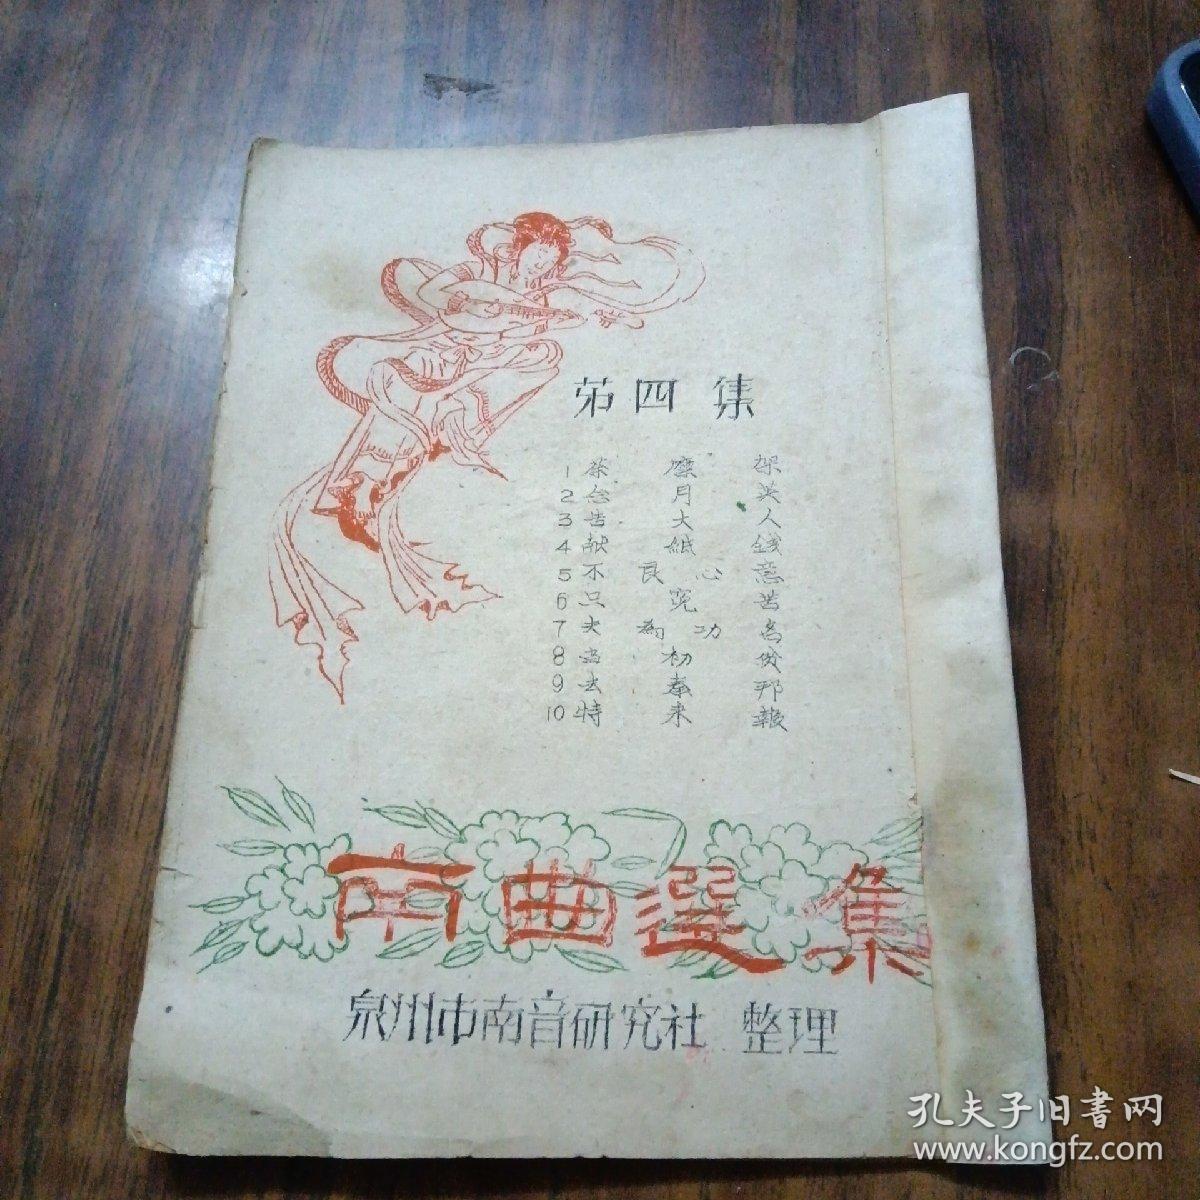 第四集
1 荼 縻 架
2 念 月 英
3 告 大 人
4 献 紙 錢
5 不 良 心 意
6 只 冤 苦
7 夫 為 功 名
8 当 初 貧
9 去 秦 邦
10 特 来 報
南曲選集
泉州市南音研究社 整理
孔夫子旧書网
www.kongfz.com